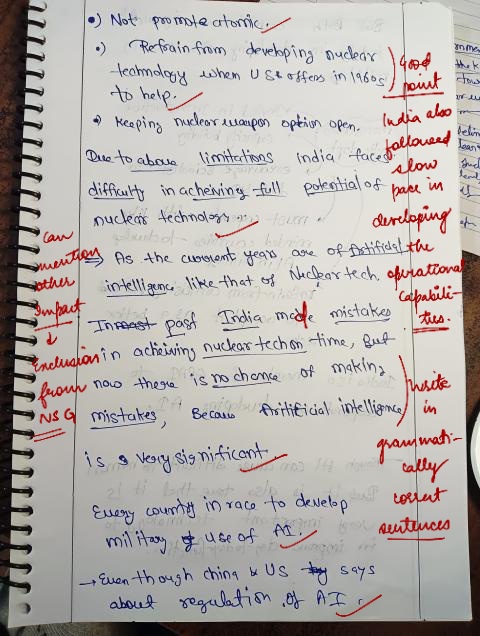 •) Not promote atomic.
•) Refrain from developing nuclear
technology when US offers in 1960s
to help.
Good
point
• Keeping nuclear weapon option open.
Due to above limitations India faced
difficulty in acheiving full potential of
nuclear technology.
India also
followed
slow
pace in
developing
the
operational
capabili-
ties.
⇒ As the current years are of Artificial
intelligence like that of Nuclear tech,
In past India made mistakes
in acheiving nuclear tech on time, But
now there is no chance of making
mistakes, Becau Artificial intelligence
is a very significant.
can
mention
other
Impact
↓
Exclusion
from
NSG
Write
in
grammati-
cally
correct
sentences
Every country in race to develop
military use of AI.
→ Even though china & US says
about regulation of AI.